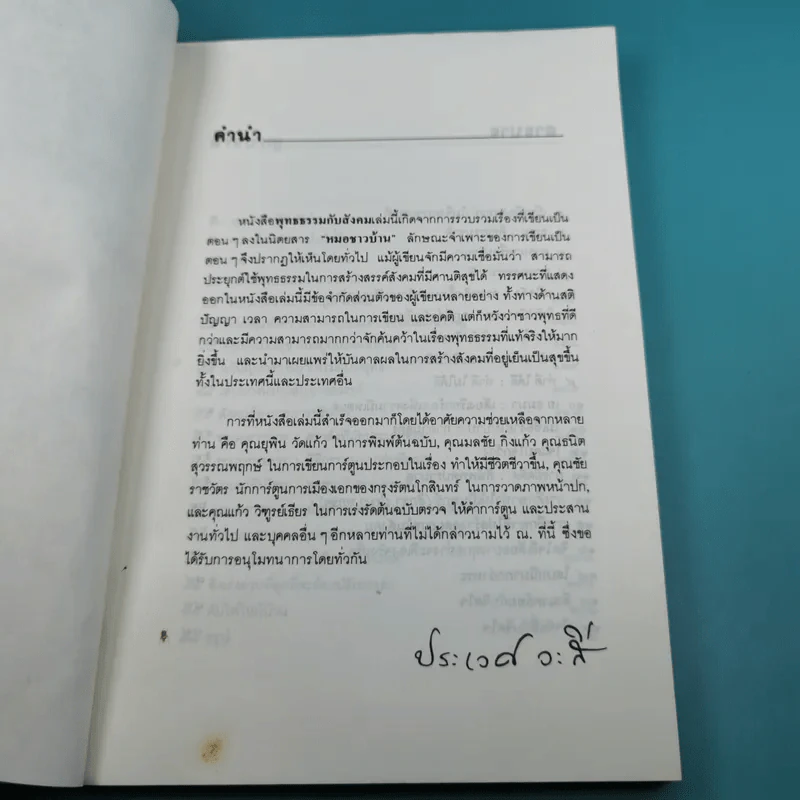 คำนำ
หนังสือพุทธธรรมกับสังคมเล่มนี้เกิดจากการรวบรวมเรื่องที่เขียนเป็น
ตอน ๆ ลงในนิตยสาร "หมอชาวบ้าน" ลักษณะจำเพาะของการเขียนเป็น
ตอน ๆ จึงปรากฏให้เห็นโดยทั่วไป แม้ผู้เขียนจักมีความเชื่อมั่นว่า สามารถ
ประยุกต์ใช้พุทธธรรมในการสร้างสรรค์สังคมที่มีศานติสุขได้ ทรรศนะที่แสดง
ออกในหนังสือเล่มนี้มีข้อจำกัดส่วนตัวของผู้เขียนหลายอย่าง ทั้งทางด้านสติ
ปัญญา เวลา ความสามารถในการเขียน และอคติ แต่ก็หวังว่าชาวพุทธที่ดี
กว่าและมีความสามารถมากกว่าจักค้นคว้าในเรื่องพุทธธรรมที่แท้จริงให้มาก
ยิ่งขึ้น และนำมาเผยแพร่ให้บันดาลผลในการสร้างสังคมที่อยู่เย็นเป็นสุขขึ้น
ทั้งในประเทศนี้และประเทศอื่น
การที่หนังสือเล่มนี้สำเร็จออกมาก็โดยได้อาศัยความช่วยเหลือจากหลาย
ท่าน คือ คุณยุพิน วัดแก้ว ในการพิมพ์ต้นฉบับ, คุณมลชัย กิ่งแก้ว คุณธนิต
สุวรรณพฤกษ์ ในการเขียนการ์ตูนประกอบในเรื่อง ทำให้มีชีวิตชีวาขึ้น, คุณชัย
ราชวัตร นักการ์ตูนการเมืองเอกของกรุงรัตนโกสินทร์ ในการวาดภาพหน้าปก,
และคุณแก้ว วิฑูรย์เธียร ในการเร่งรัดต้นฉบับตรวจ ให้คำการ์ตูน และประสาน
งานทั่วไป และบุคคลอื่น ๆ อีกหลายท่านที่ไม่ได้กล่าวนามไว้ ณ. ที่นี้ ซึ่งขอ
ได้รับการอนุโมทนาการโดยทั่วกัน
ประเวศ วะสี